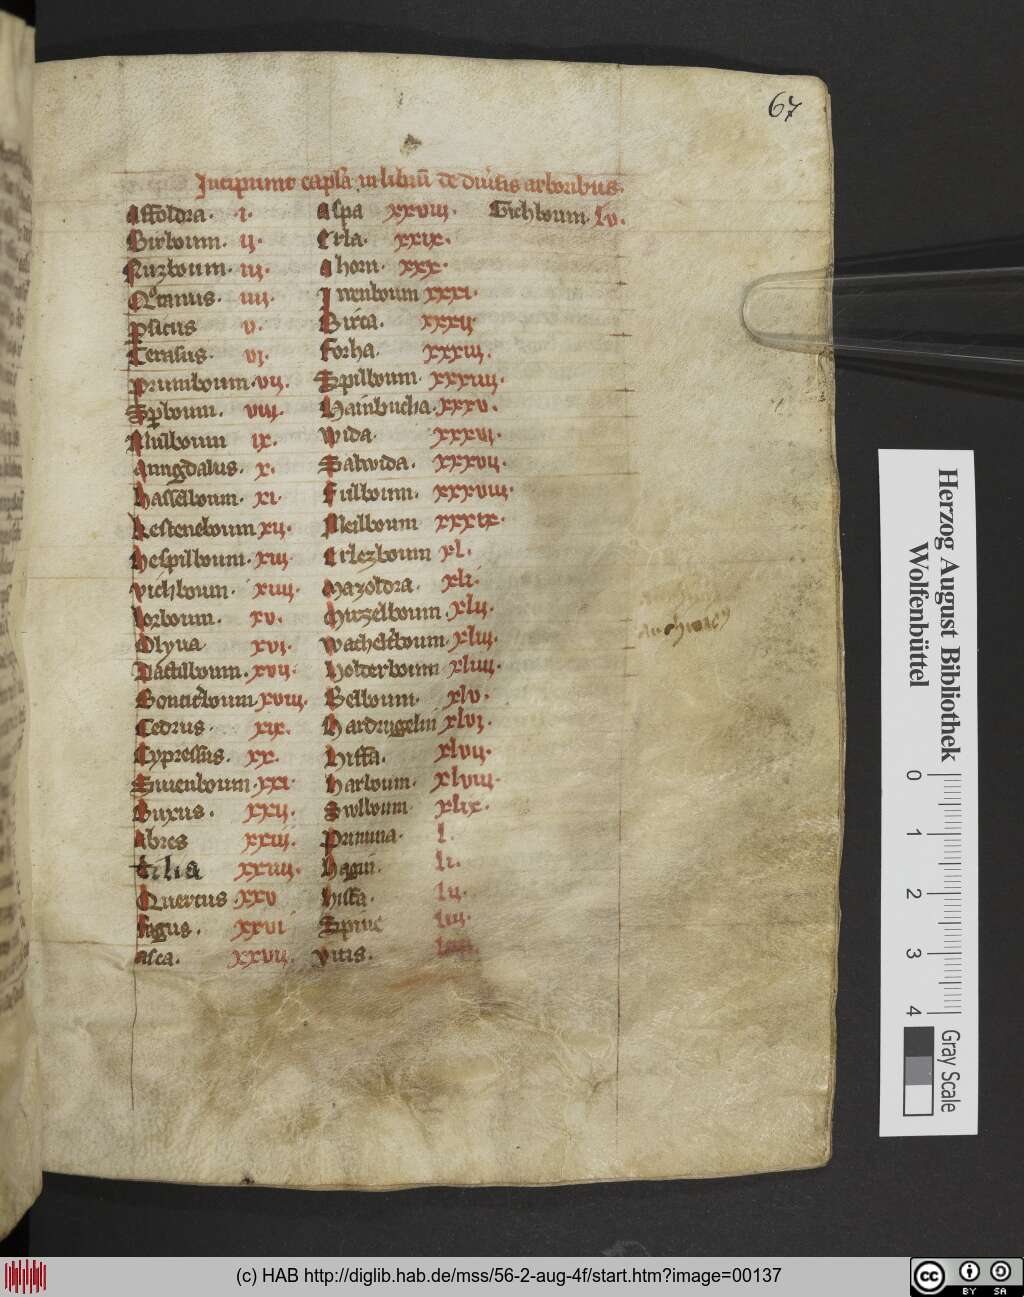 67
Incipiunt capla in libru de diuersis arboribus.
Affoldra. i.
Birboum. ij.
Nuzboum. iij.
Qtanus. iiij.
psicus v.
Cerasus. vj.
prumboum. vij.
Spboum. viij.
Mulboum ix.
Amigdalus. x.
hasselboum. xi.
kesteneboum xij.
hespilboum. xiij.
vichboum. xiiij.
lorboum. xv.
Olyua xvj.
Dactilboum. xvij.
Bonticboum xviij.
Cedrus. xix.
Cypressus. xx.
Siuenboum. xxi.
Buxus. xxij.
Abies xxiij.
tilia xxiiij.
Quercus. xxv
fagus. xxvi
Asca. xxvij.
Aspa xxviij.
Erla. xxix.
Ahorn. xxx.
Iwenboum xxxi.
Birca. xxxij.
Forha. xxxiij.
Spilboum. xxxiiij.
Hainbucha. xxxv.
Wida. xxxvj.
Salwida. xxxvij.
Fulboum. xxxviij.
Meilboum xxxix.
Erlezboum xl.
Mazoldra. xli.
Huzelboum. xlij.
Wachelterboum xliij.
Holderboum xliiij.
Belboum. xlv.
Hardrugelin xlvj.
Hiffa. xlvij.
Harboum. xlviij.
Swlboum xlix.
Primma. l.
Hagin. li.
Hiffa. lij.
Spine liij.
Vitis. liiij.
Eichboum. lv.
Herzog August Bibliothek
Wolfenbüttel
0 1 2 3 4
Gray Scale
(c) HAB http://diglib.hab.de/mss/56-2-aug-4f/start.htm?image=00137
cc BY SA